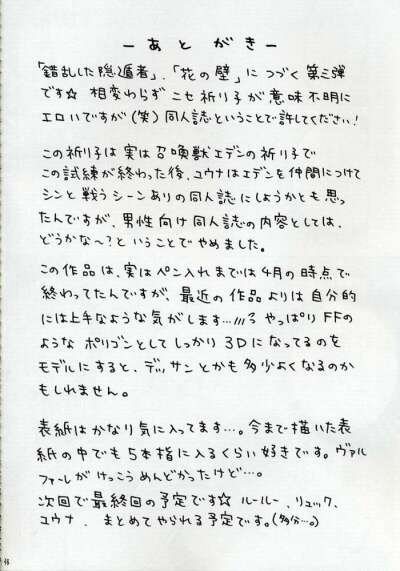 －あとがき－
「錯乱した隠遁者」、「花の壁」につづく第三弾
です☆ 相変わらずニセ祈り子が意味不明に
エロいですが(笑)同人誌ということで許してください!
この祈り子は実は召喚獣エデンの祈り子で
この試練が終わった後、ユウナはエデンを仲間につけて
シンと戦うシーンありの同人誌にしようかとも思っ
たんですが、男性向け同人誌の内容としては、
どうかな〜?ということでやめました。
この作品は、実はペン入れまでは4月の時点で
終わってたんですが、最近の作品よりは自分的
には上手なような気がします…///3 やっぱりFFの
ような ポリゴンとしてしっかり3Dになってるのを
モデルにすると、デッサンとかも多少よくなるのか
もしれません。
表紙はかなり気に入ってます…。今まで描いた表
紙の中でも5本指に入るくらい好きです。ヴァル
ファーレがけっこうめんどかったけど…。
次回で最終回の予定です☆ ルールー、リュック、
ユウナ、まとめてやられる予定です。(多分…。)